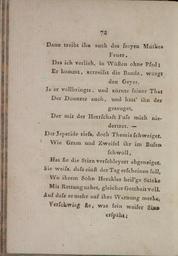 72
Dann treibt ihn auch des freyen Muthes
Feuer,
Das ich verlieh, in Wüsten ohne Pfad;
Er kommt, zerreißt die Bande, würgt
den Geyer.
Ja er vollbringet, und zürnte seiner That
Der Donnerer auch, und hass' ihn der
Der mit der Herrschaft Fuß mich nie-
dertrat. —
Der Japetide riefs, doch Themis schweiget.
Wie Gram und Zweifel ihr im Busen
schwoll,
Hat sie die Stirn verschleyert abgeneiget.
Sie weiß, daß einst der Tag erscheinen soll,
Wo ihrem Sohn Herkules heil'ge Stärke
Mit Rettung nahet, gleicher Gottheit voll.
Und daß er mehr auf ihre Warnung merke,
Verschwieg sie, was sein weiser Sinn
erspäht;